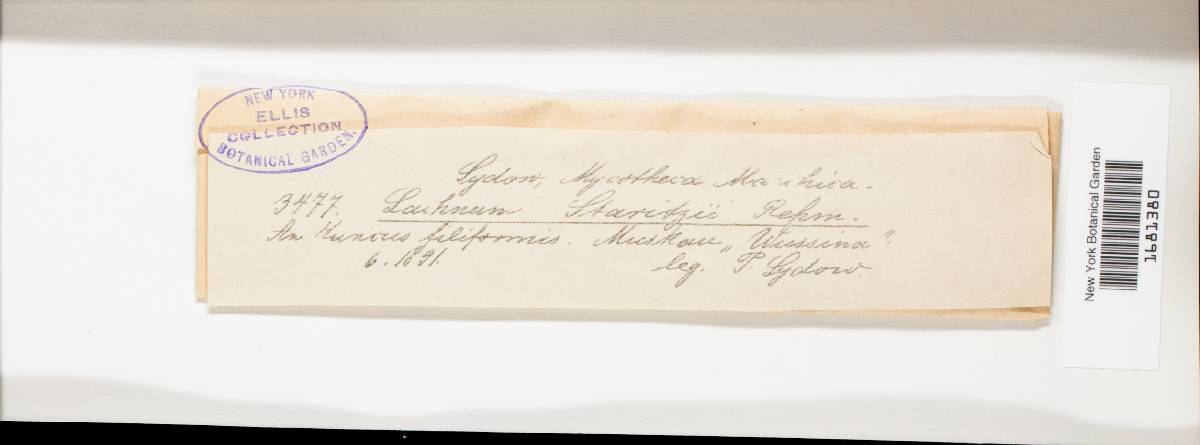 NEW YORK
ELLIS
COLLECTION
BOTANICAL GARDEN.
Sydow, Mycotheca Marchica.
3477. Lachnum Staritzii Rehm.
An Juncus filiformis. Muskau „Wussina“.
6. 1891. leg. P. Sydow.
New York Botanical Garden
1681380